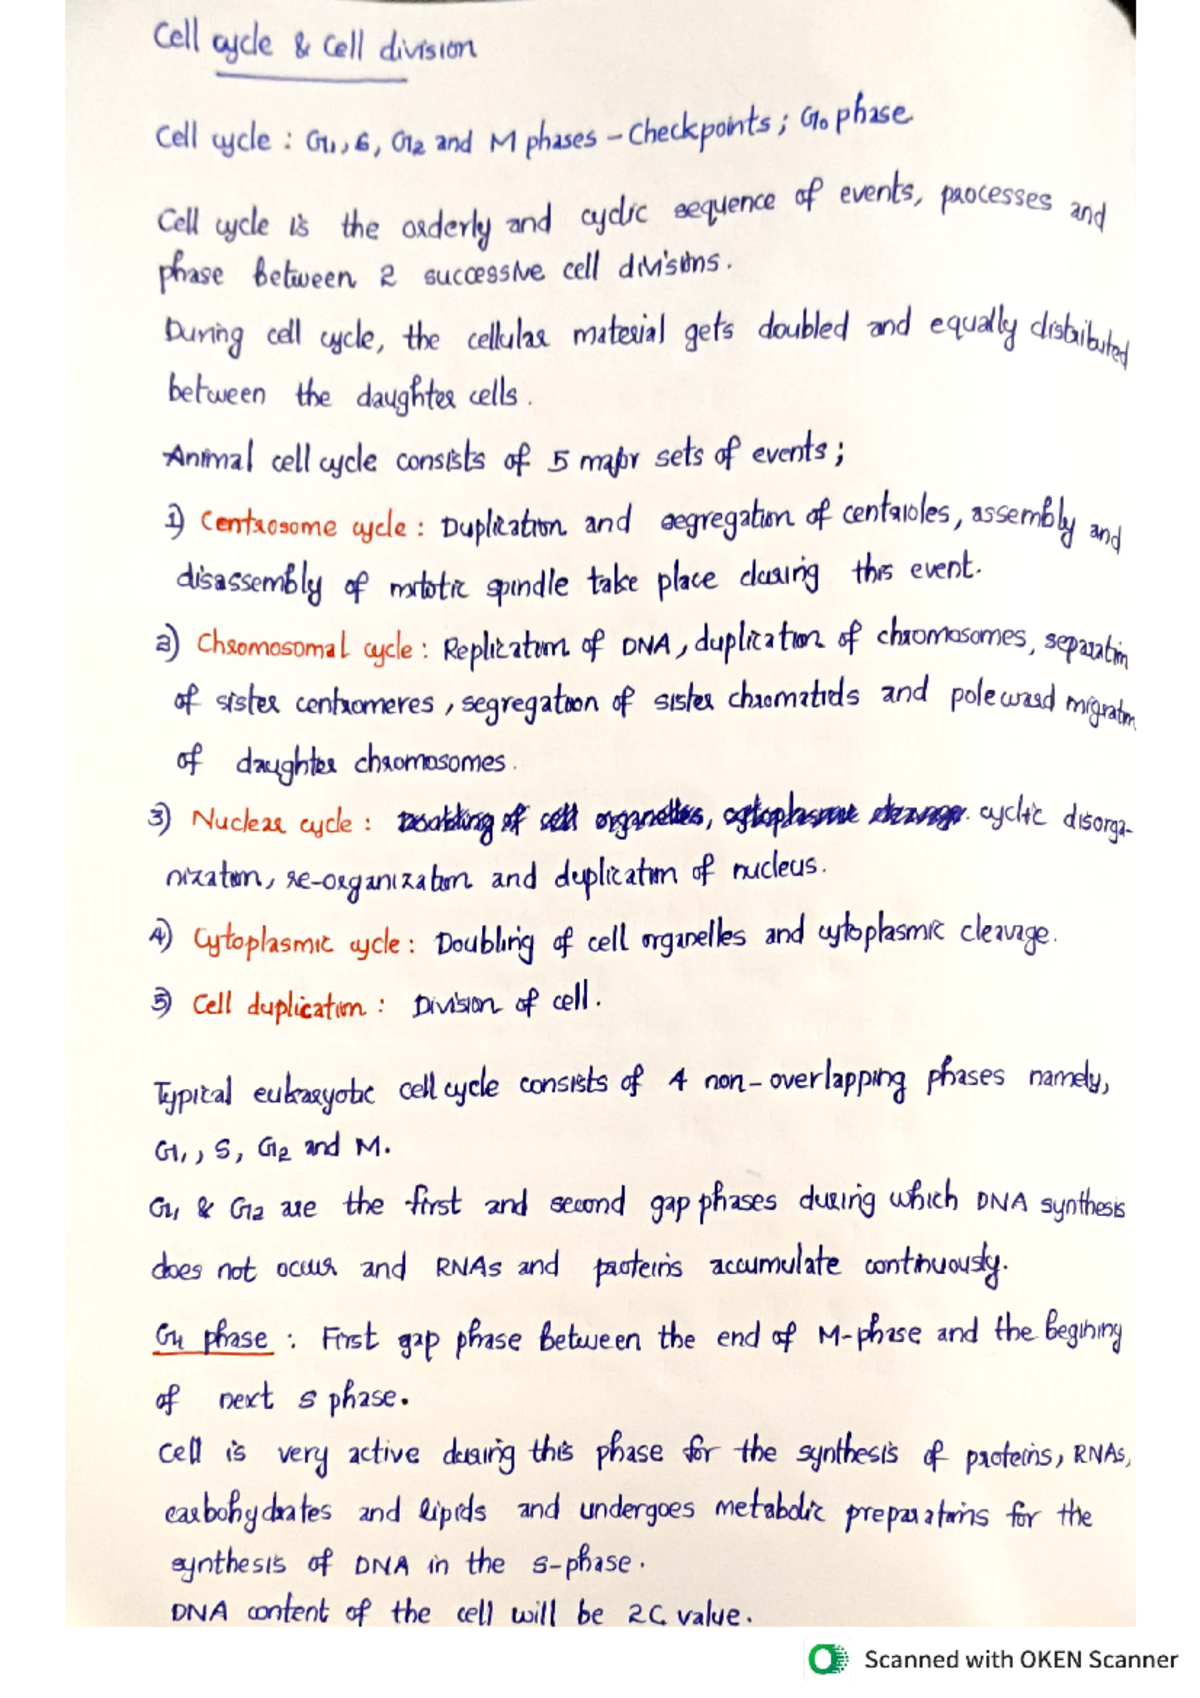 Cell cycle & Cell division
Cell cycle : G1, S, G2 and M phases - Checkpoints ; G0 phase
Cell cycle is the orderly and cyclic sequence of events, processes and
phase between 2 successive cell divisions.
During cell cycle, the cellular material gets doubled and equally distributed
between the daughter cells.
Animal cell cycle consists of 5 major sets of events ;
1) Centrosome cycle : Duplication and segregation of centrioles, assembly and
disassembly of mitotic spindle take place during this event.
2) Chromosomal cycle : Replication of DNA, duplication of chromosomes, separation
of sister centromeres, segregation of sister chromatids and poleward migration
of daughter chromosomes.
3) Nuclear cycle : Doubling of cell organelles, cytoplasmic cleavage. cyclic disorga-
nization, re-organization and duplication of nucleus.
4) Cytoplasmic cycle : Doubling of cell organelles and cytoplasmic cleavage.
5) Cell duplication : Division of cell.
Typical eukaryotic cell cycle consists of 4 non-overlapping phases namely,
G1, , S, G2 and M.
G1, & G2 are the first and second gap phases during which DNA synthesis
does not occur and RNAs and proteins accumulate continuously.
G1 phase : First gap phase between the end of M-phase and the begining
of next S phase.
Cell is very active during this phase for the synthesis of proteins, RNAs,
carbohydrates and lipids and undergoes metabolic preparations for the
synthesis of DNA in the S-phase.
DNA content of the cell will be 2C value.
Scanned with OKEN Scanner